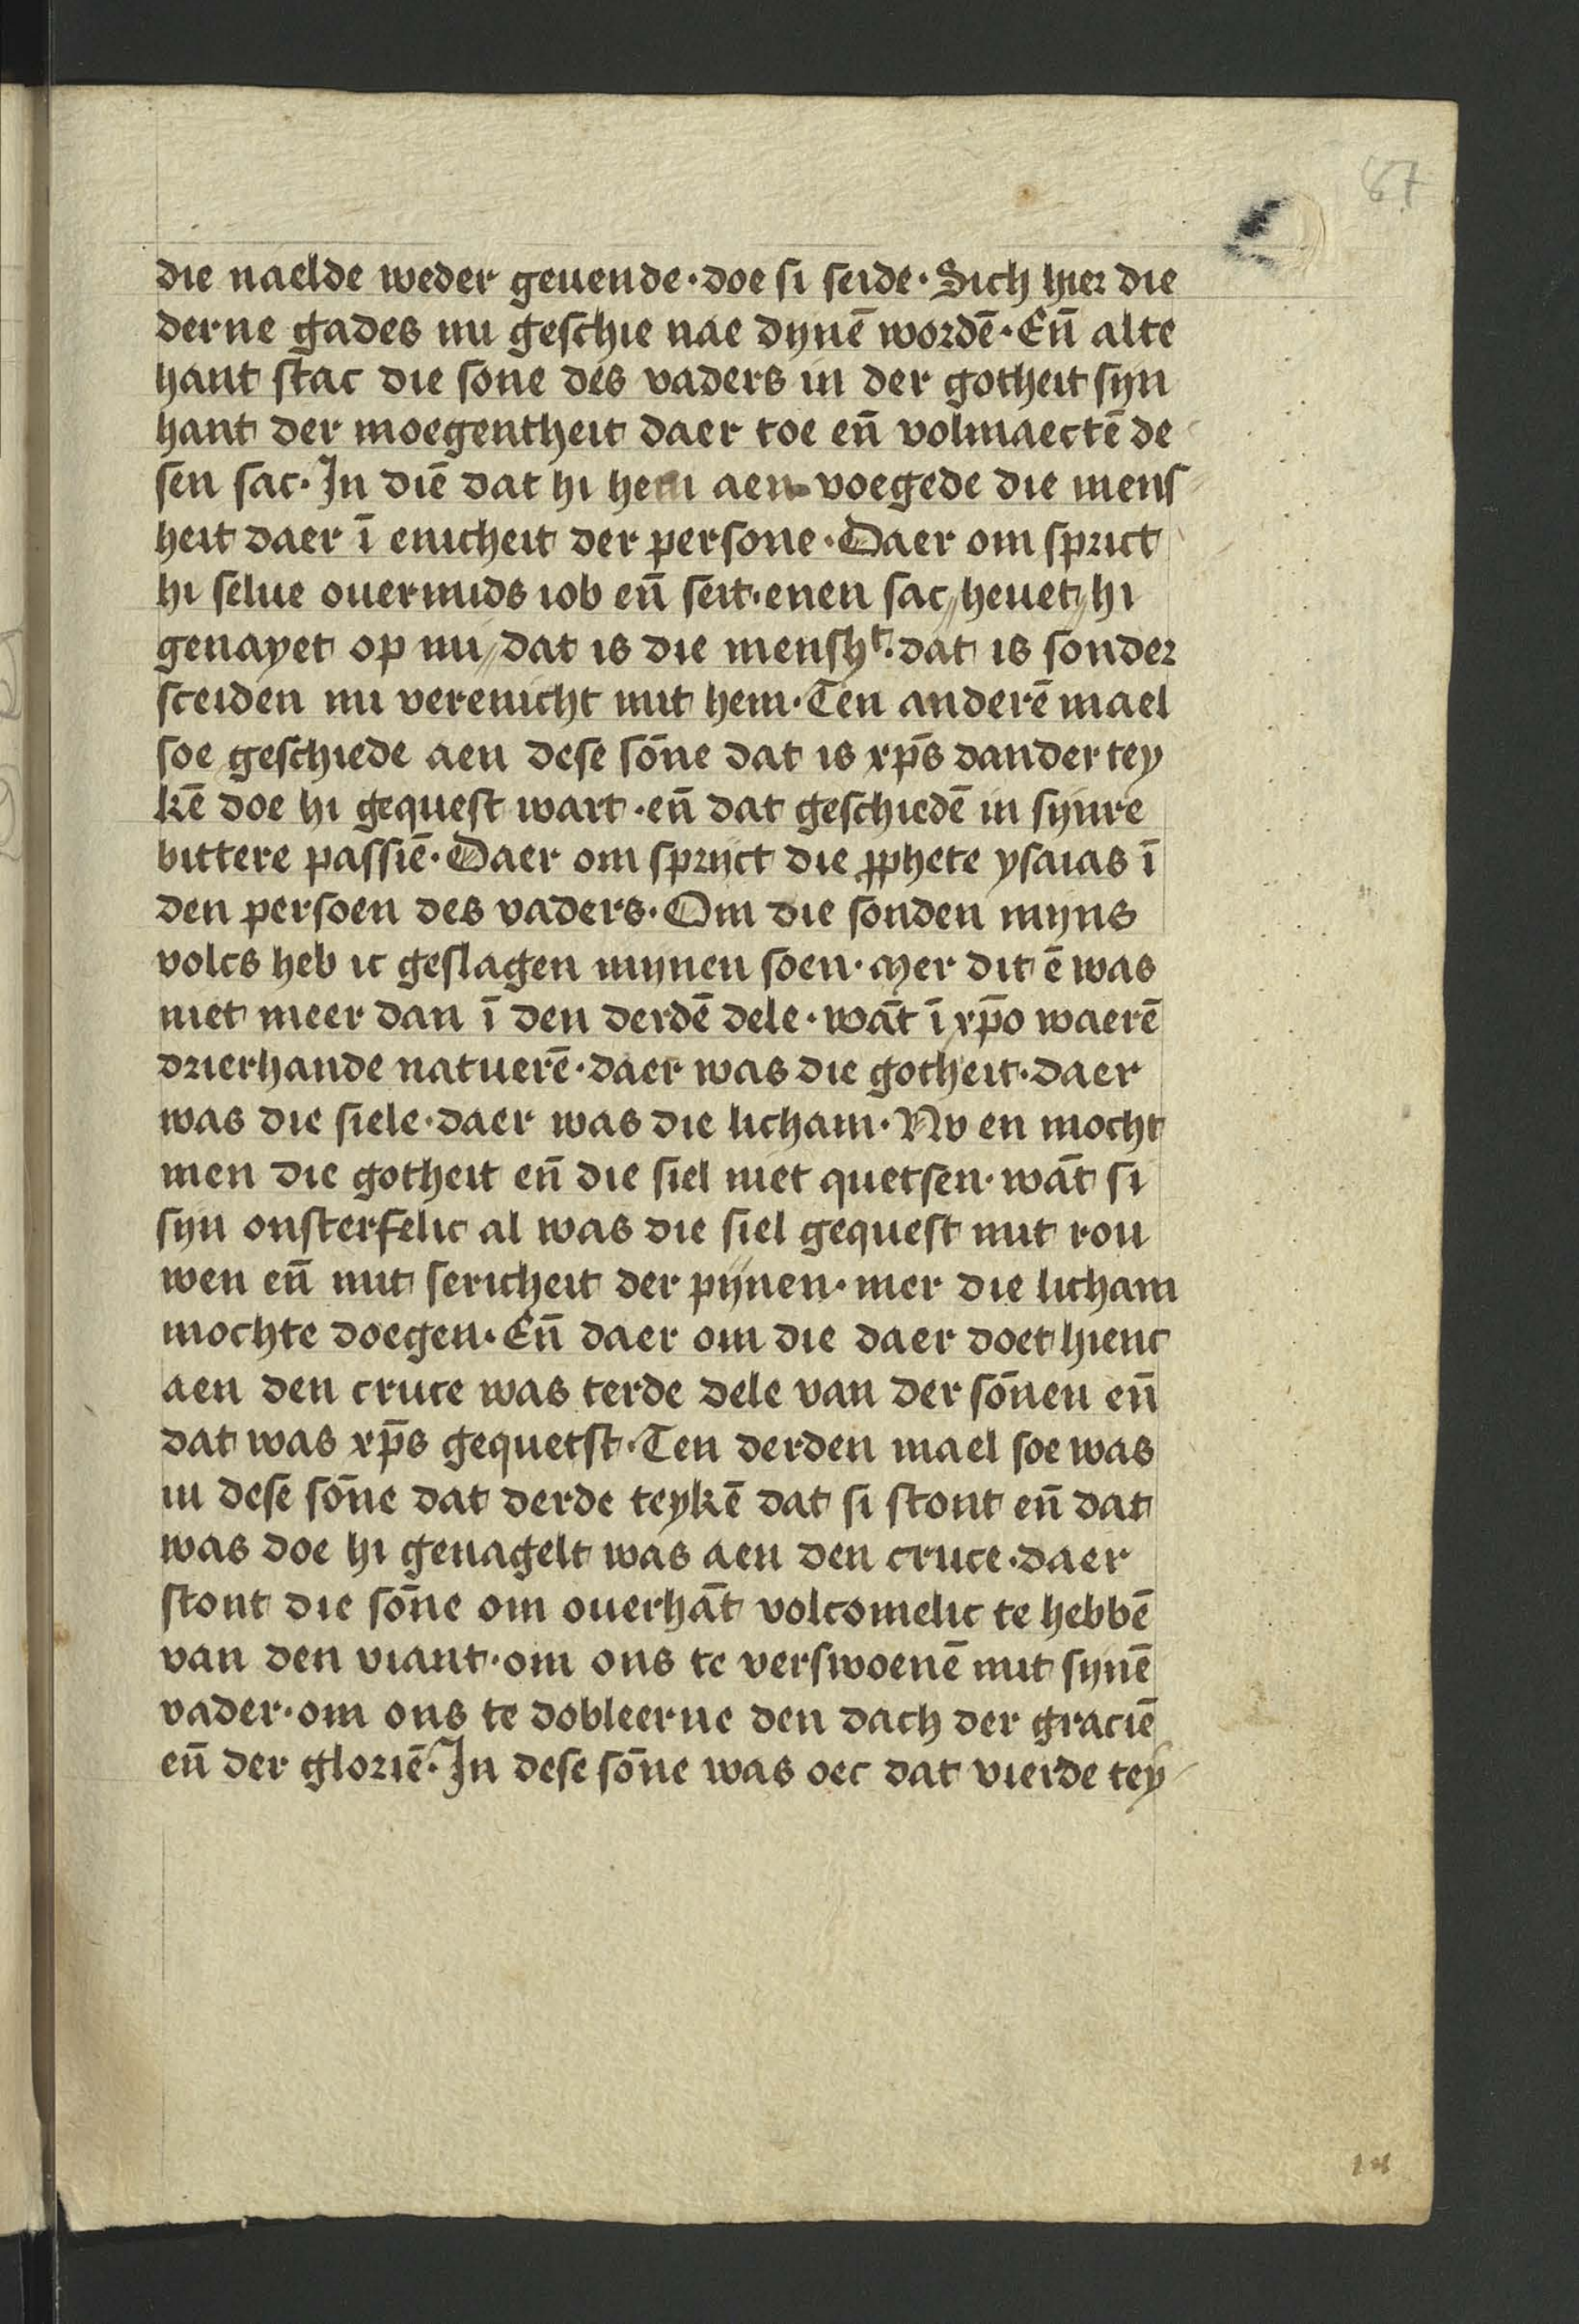 67
die naelde weder geuende · doe si seide · Sich hier die
derne gades mi geschie nae dynē wordē · Eñ alte
hant stac die sone des vaders in der gotheit syn
hant der moegentheit daer toe eñ volmaectē de
sen sac · In diē dat hi hem aen voegede die mens
heit daer ī enicheit der persone · Daer om sprict
hi selue ouermids iob eñ seit · enen sac heuet hi
genayet op mi dat is die menshᵗ · dat is sonder
sceiden mi verenicht mit hem · Ten anderē mael
soe geschiede aen dese sōne dat is xp̄s dander tey
kē doe hi gequest wart · eñ dat geschiedē in synre
bittere passiē · Daer om sprijct die ꝓphete ysaias ī
den persoen des vaders · Om die sonden myns
volcs heb ic geslagen mynen soen · Mer dit ē was
niet meer dan ī den derdē dele · wāt ī xp̄o waerē
drierhande natuerē · daer was die gotheit · daer
was die siele · daer was die licham · Nv en mocht
men die gotheit eñ die siel niet quetsen · wāt si
syn onsterfelic al was die siel gequest mit rou
wen eñ mit sericheit der pynen · mer die licham
mochte doegen · Eñ daer om die daer doet hienc
aen den cruce was terde dele van der sōnen eñ
dat was xp̄s gequetst · Ten derden mael soe was
in dese sōne dat derde teykē dat si stont eñ dat
was doe hi genagelt was aen den cruce · daer
stont die sōne om ouerhāt volcomelic te hebbē
van den viant · om ons te verswoenē mit synē
vader · om ons te dobleerne den dach der graciē
eñ der gloriē · In dese sōne was oec dat vierde tey